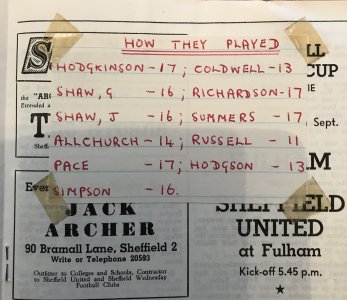 HOW THEY PLAYED
HODGKINSON - 17; COLDWELL - 13
SHAW, G - 16; RICHARDSON - 17
SHAW, J - 16; SUMMERS - 17
ALLCHURCH - 14; RUSSELL - 11
PACE - 17; HODGSON - 13
SIMPSON - 16.
S
LL
CUP
the "ARC
Extended a
IE
T
, Sept.
Sheff
M
Ever
JACK
ARCHER
90 Bramall Lane, Sheffield 2
Write or Telephone 20593
Outfitter to Colleges and Schools, Contractor
to Sheffield United and Sheffield Wednesday
Football Clubs
SHEFFIELD
UNITED
at Fulham
Kick-off 5.45 p.m.